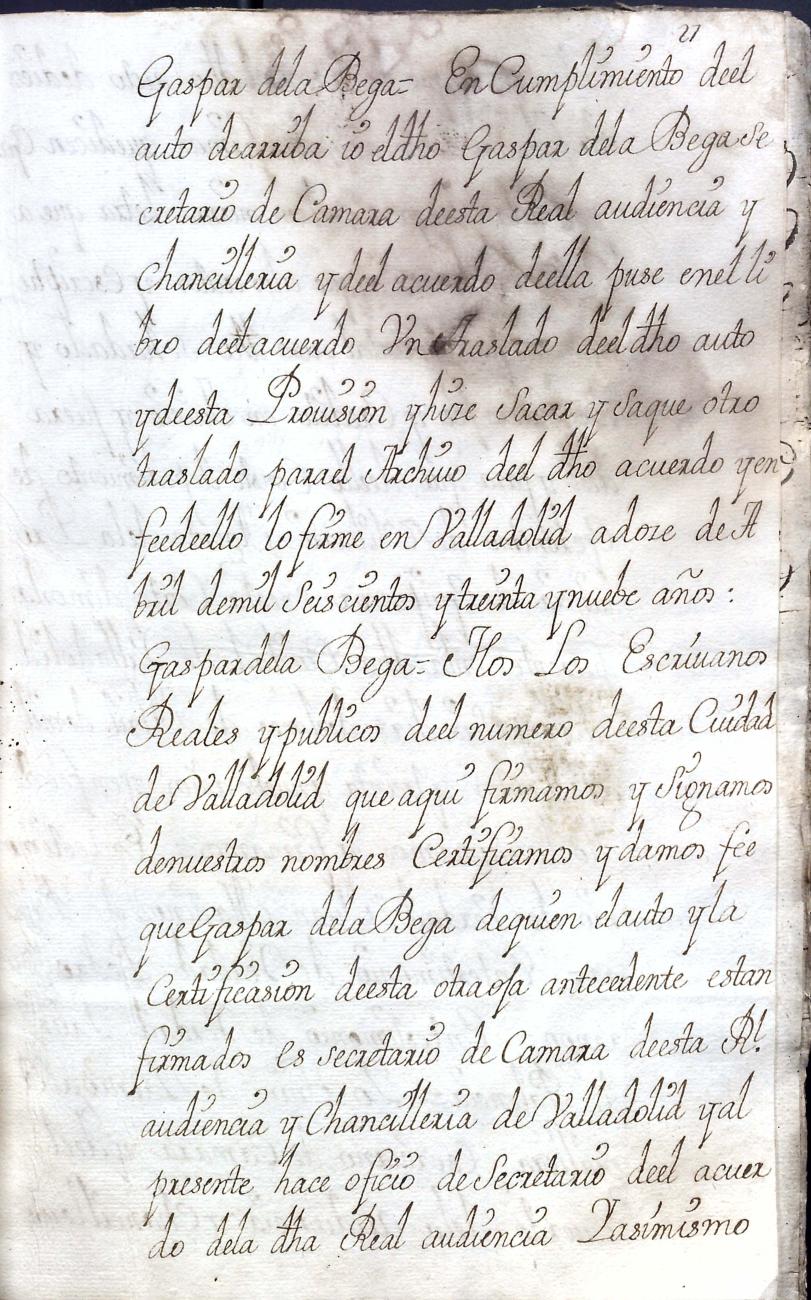 27
Gaspar dela Bega= En Cumplimiento deel
auto dearriba io eldho Gaspar dela Bega Se
cretario de Camara deesta Real audiencia y
Chancilleria y deel acuerdo deella puse enel li
bro deel acuerdo Vn traslado deel dho auto
y deesta Prouision y hize Sacar y Saque otro
traslado parael Archiuo deel dho acuerdo y en
feedeello lo firme en Valladolid adoze de A
bril demil Seiscientos y treinta ynuebe años:
Gaspardela Bega= Nos Los Escriuanos
Reales y publicos deel numero deesta Ciudad
de Valladolid que aqui firmamos y Signamos
denuestros nombres Certificamos y damos fee
que Gaspar dela Bega dequien el auto y la
Certificasion deesta otra oja antecedente estan
firmados es secretario de Camara deesta Rl.
audiencia y Chancilleria de Valladolid y al
presente hace oficio de Secretario deel acuer
do dela dha Real audiencia Yasimismo